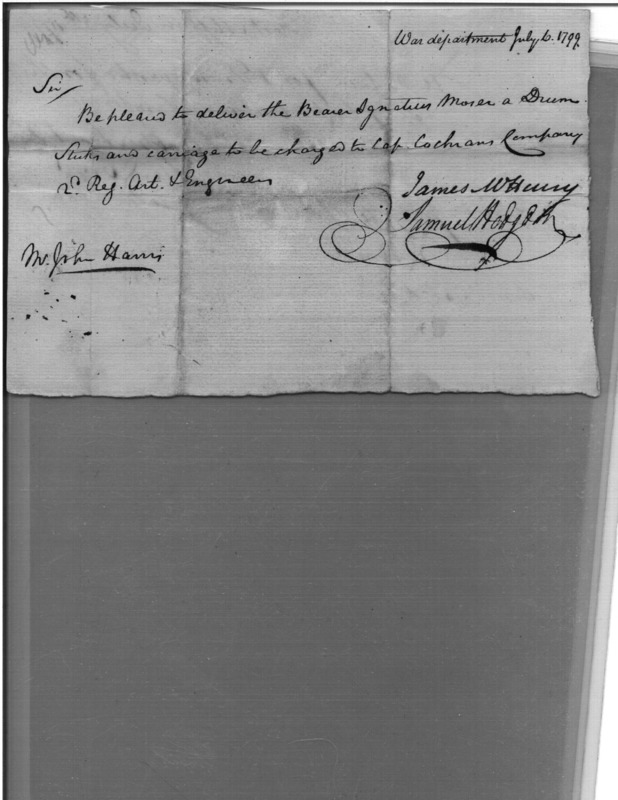 War department July 6. 1799.
Sir/
Be pleased to deliver the Bearer Ignatius Moser a Drum
Sticks and carriage to be charged to Cap. Cochrans Company
2d. Reg. Art. & Engineers
James McHenry
Samuel Hodgdon
Mr. John Harris